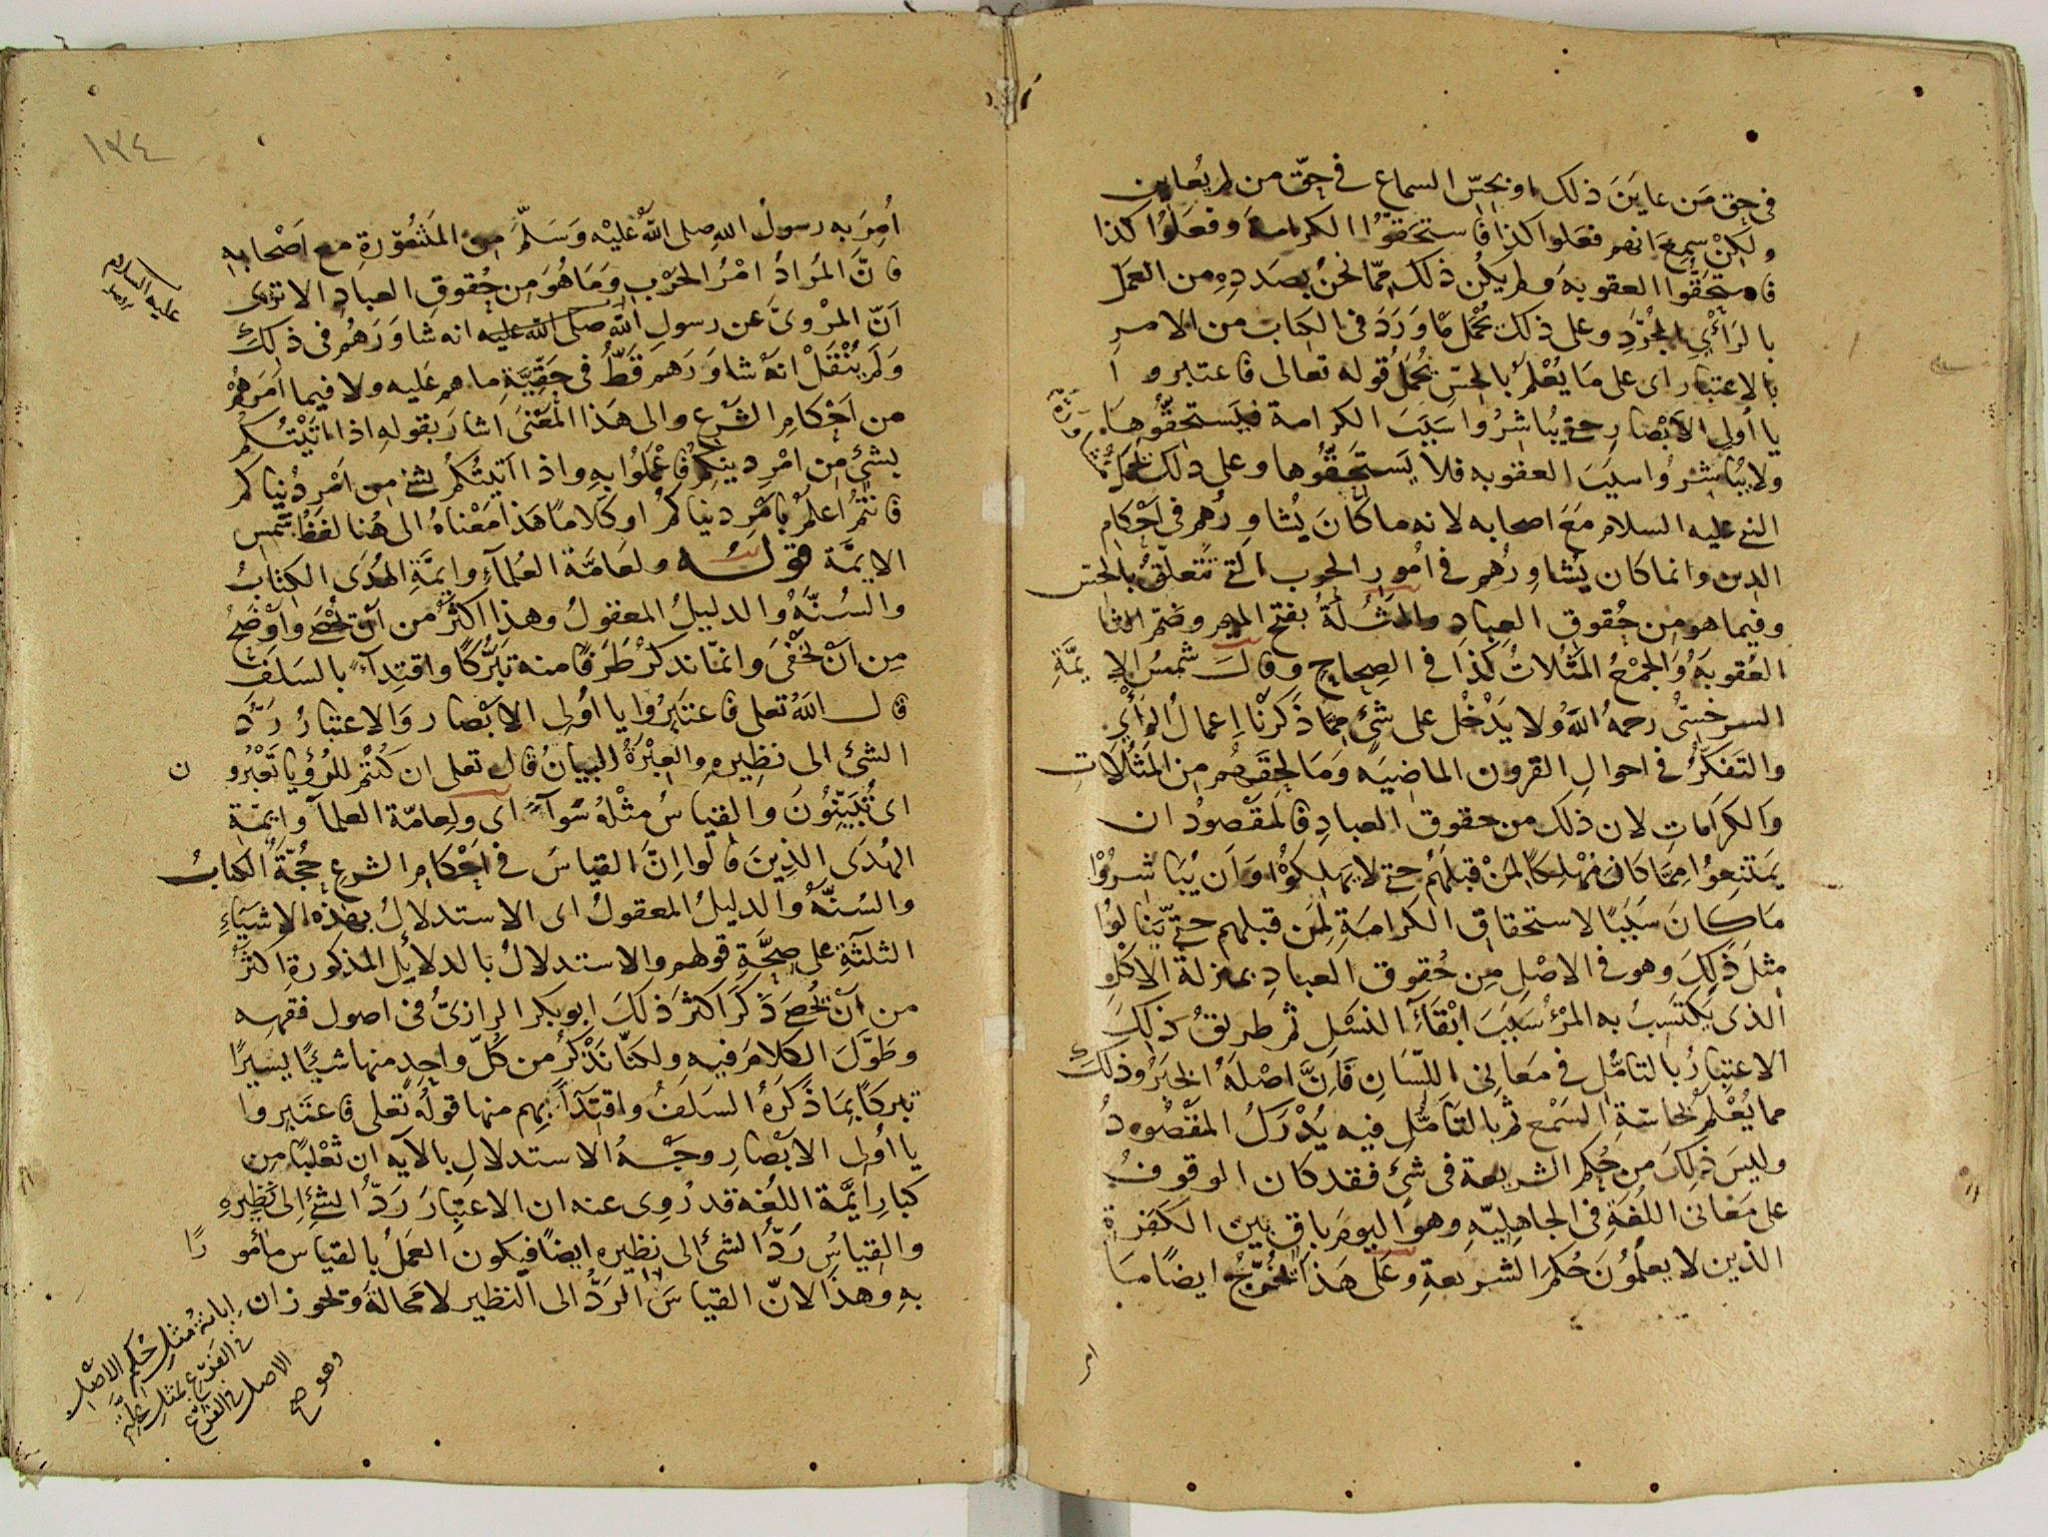 في حق من عاين ذلك او بحسّ السماع في حق من لم يعاين
ولكن سمع انهم فعلوا كذا فاستحقوا الكرامة وفعلوا كذا
فاستحقوا العقوبة ولم يكن ذلك ممّا نحن بصدده من العمل
بالرأي المجرّد وعلى ذلك يحمل ما ورد في الكتاب من الامر
بالاعتبار اى على ما يعلم بالحسّ يحمل قوله تعالى فاعتبروا
يا أولى الأبصار حتى يباشروا سبب الكرامة فيستحقّوها
ولا يباشروا سبب العقوبه فلا يستحقّوها وعلى ذلك تحمل مشاورة
النبي عليه السلام مع اصحابه لانه ما كان يشاورهم في احكام
الدين وانما كان يشاورهم في أمور الحرب التي تتعلق بالحس
وفيما هو من حقوق العباد والمثلة بفتح الميم وضم الثا
العقوبة والجمع المثلات كذا في الصحاح وقال شمس الايمّة
السرخسي رحمه الله ولا يدخل على شئ ممّا ذكرنا اعمال الرأي
والتفكّر في احوال القرون الماضيه وما لحقهم من المثلات
والكرامات لان ذلك من حقوق العباد فالمقصود ان
يمتنعوا ممّا كان مهلكا لمن قبلهم حتى لا يهلكوا وان يباشروا
ما كان سببا لاستحقاق الكرامة لمن قبلهم حتى ينالوا
مثل ذلك وهو في الاصل من حقوق العباد بمنزلة الاكل
الذى يكتسب به المرء سبب ابقاء النسل ثم طريق ذلك
الاعتبار بالتامّل في معانى اللّسان فانّ اصله الخبر وذلك
مما يعلم بحاسّة السمع ثم بالتأمّل فيه يدرك المقصود
وليس ذلك من حكم الشريعة فى شئ فقد كان الوقوف
على معانى اللغة فى الجاهليّه وهو اليوم باق بين الكفرة
الذين لا يعلمون حكم الشريعة وعلى هذا تخرّج ايضا ما
امر
١٣٤
أمر به رسول الله صلى الله عليه وسلّم من المشورة مع اصحابه
فانّ المراد امر الحرب وما هو من حقوق العباد الا ترى
انّ المروىّ عن رسول الله صلى الله عليه انه شاورهم فى ذلك
ولم ينقل انه شاورهم قطّ في حقّيّة ما هم عليه ولا فيما امرهم
من احكام الشرع والى هذا المعنى اشار بقوله اذا اتيتكم
بشئ من امر دينكم فاعملوا به واذا اتيتكم بشئ من امر دنياكم
فانتم اعلم بامر دنياكم او كلاما هذا معناه الى هنا لفظ شمس
الايمّة قوله ولعامّة العلماء وايمّة الهدى الكتاب
والسنّة والدليل المعقول وهذا اكثر من ان تحصى واوضح
من ان تخفى وانمّا نذكر طرفا منه تبرّكا واقتداء بالسلف
قال الله تعلى فاعتبروا يا أولى الابصار والاعتبار ردّ
الشئ الى نظيره والعبرة البيان قال تعلى ان كنتم للرؤيا تعبرون
اى تبيّنون والقياس مثله سواء اى ولعامّة العلمآ وايمّة
الهدى الذين قالوا انّ القياس في احكام الشرع حجّة الكتاب
والسنّة والدليل المعقول اى الاستدلال بهذه الاشياء
الثلثة على صحّة قولهم والاستدلال بالدلايل المذكورة اكثر
من ان تحصى ذكر اكثر ذلك ابو بكر الرازىّ فى اصول فقهه
وطوّل الكلام فيه ولكنّا نذكر من كلّ واحد منها شيئا يسيرا
تبركا بما ذكره السلف واقتداء بهم منها قوله تعلى فاعتبروا
يا أولى الابصار وجه الاستدلال بالآيه ان ثعلبا من
كبار ايمّة اللغة قد روى عنه ان الاعتبار ردّ الشئ الى نظيره
والقياس ردّ الشئ الى نظيره ايضا فيكون العمل بالقياس مأمورا
به وهذا لانّ القياس الردّ الى النظير لا محالة وتجوز ان
ابانة مثل حكم الاصل
في الفرع بمثل علّة
الاصل في الفرع
وهو صح